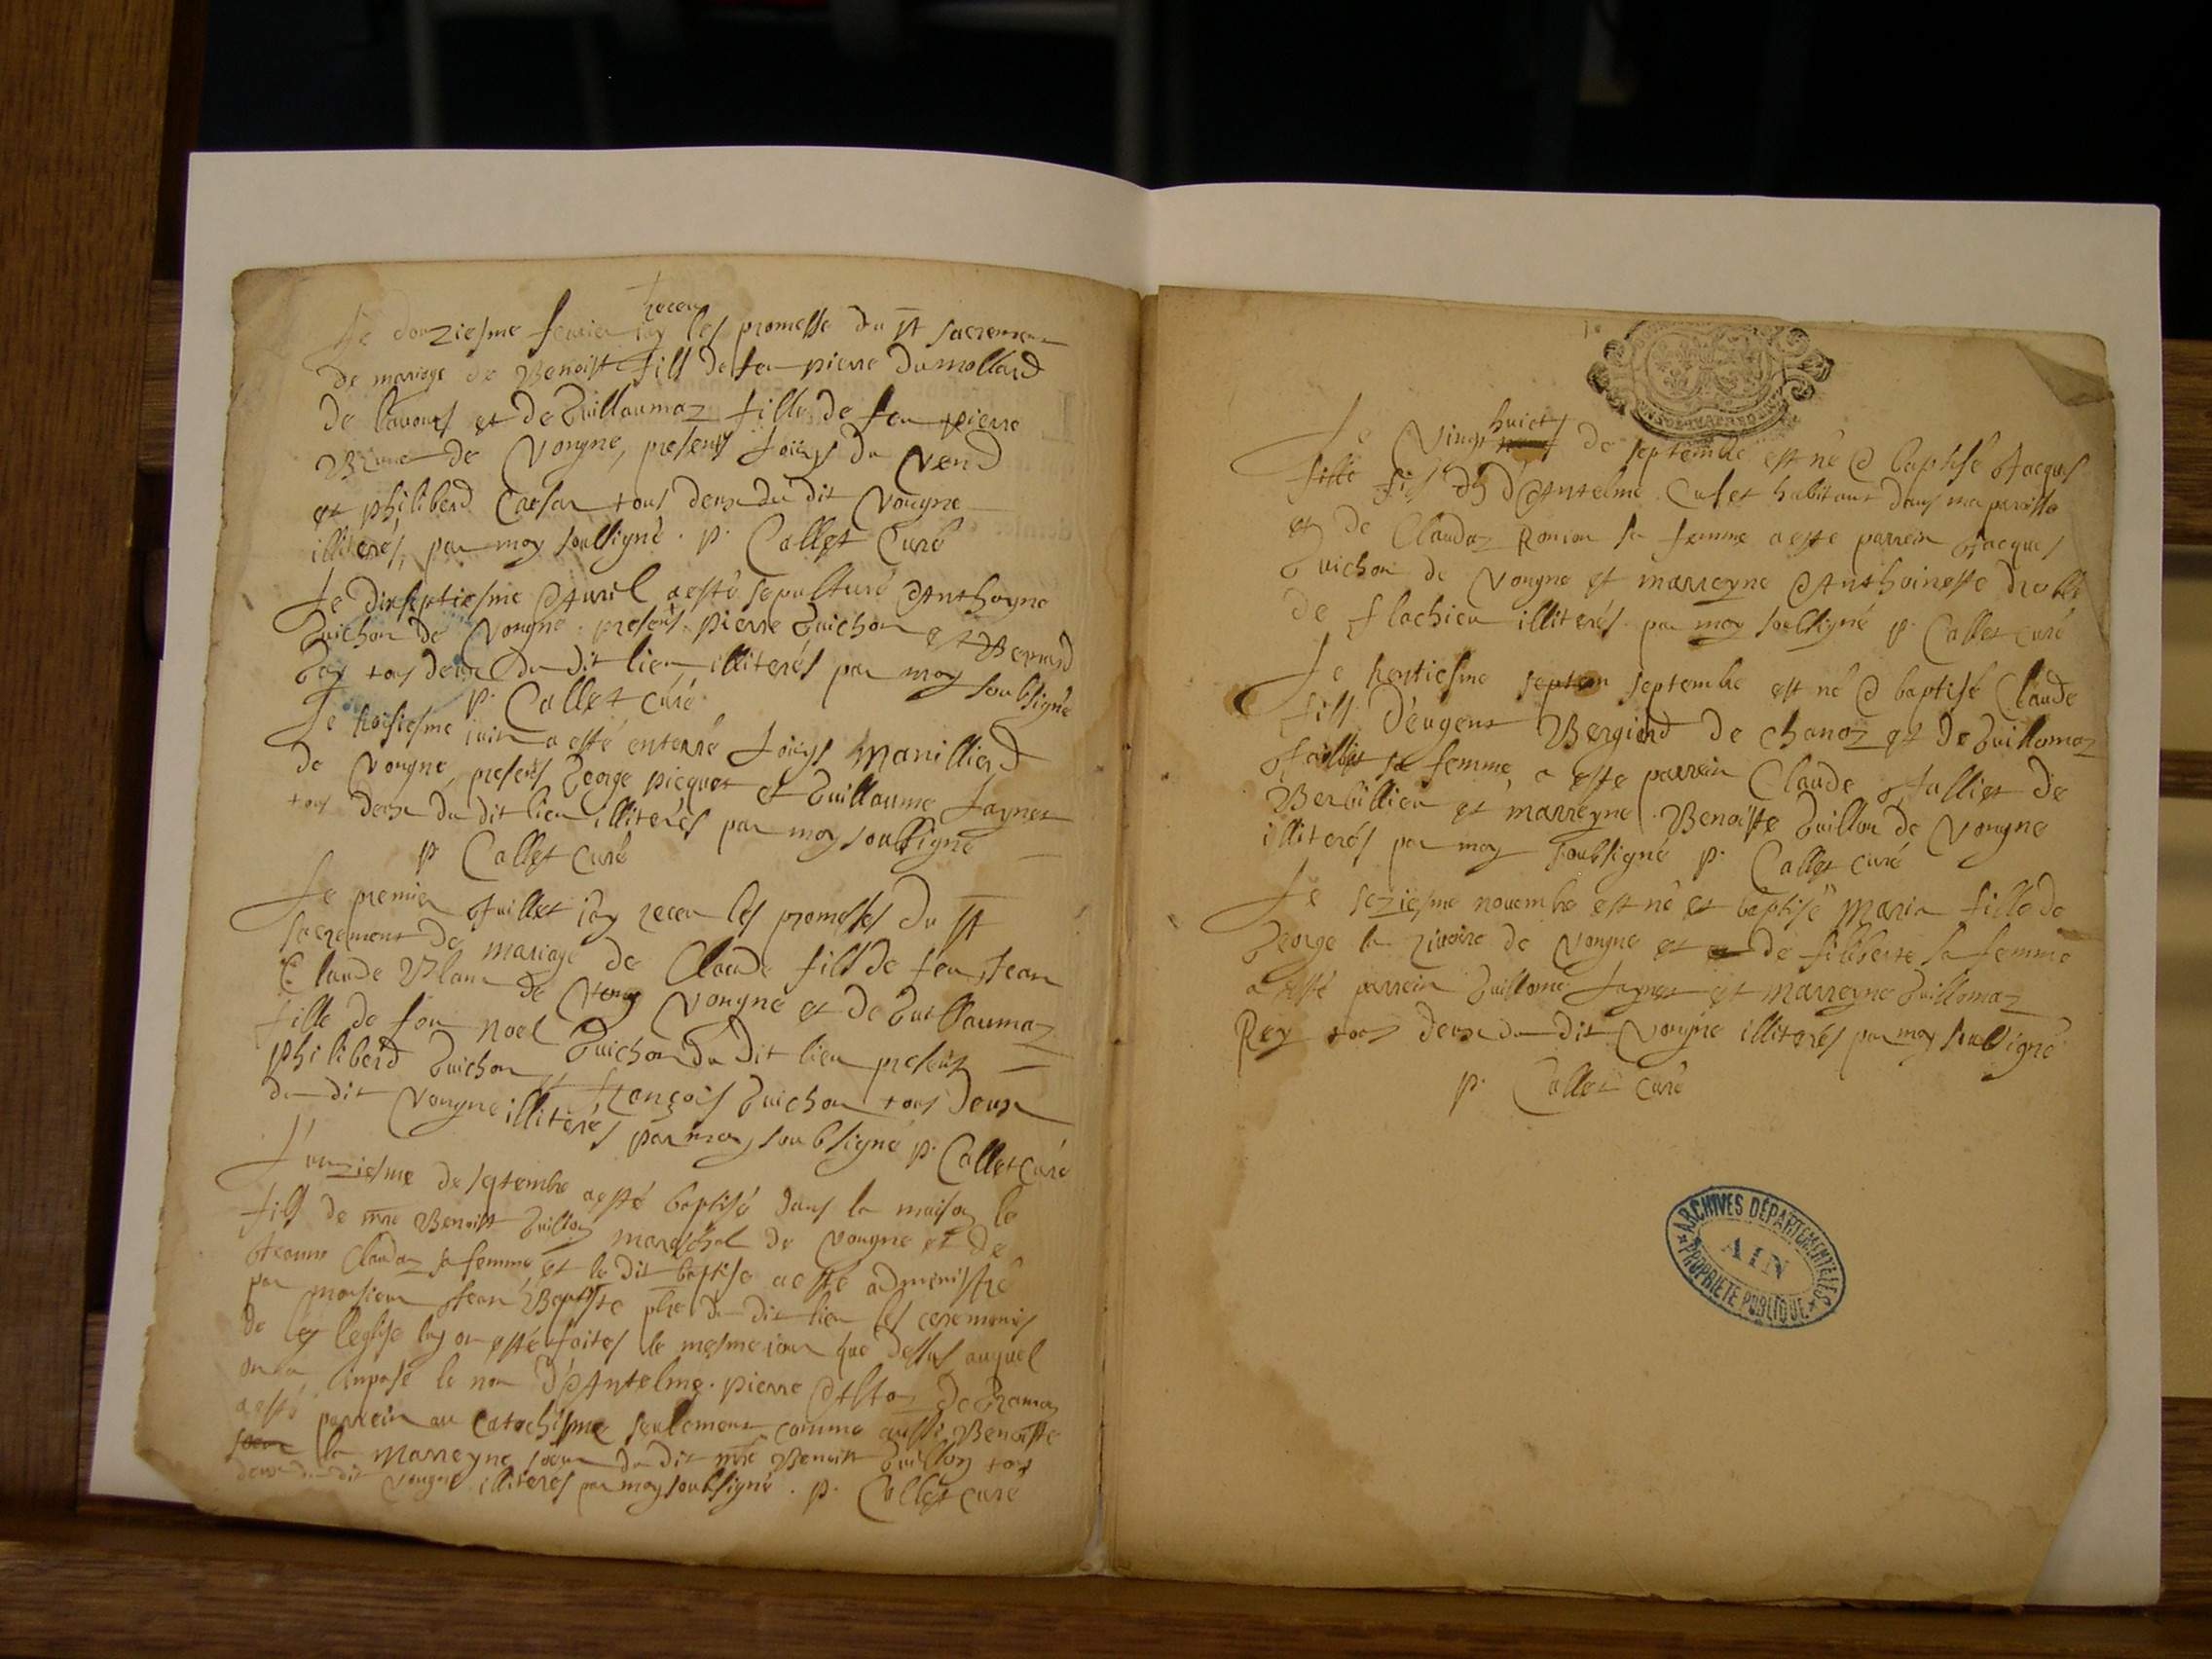 receu
Le douziesme feurier iay les promesse du st sacremen
de mariage de Benoist fils de feu pierre Dumollard
de lauours et de Guillaumaz fille de feu pierre
de Vongne, presents Loüys du Vend
et philiberd Caesar tous deux du dit Vongne
illiterés, par moy soubsigné. p. Collet Curé
Le dixseptiesme Auril a esté sepulturé Anthoyne
Guichon de Vongne. presents pierre Guichon et Bernard
Gay tous deux du dit lieu illiterés par moy soubsigné
p. Collet curé
Le troisiesme iuin a esté enterré Loüys Manilliard
de Vongne, presents George picquet et Guillaume Jaynet
tous deux du dit lieu illiterés par moy soubsigné
p Collet Curé
Le premier Juillet iay receu les promesses du st
sacrement de mariage de Claude fils de feu Jean
Claude Blanc de Vongne et de Guillaumaz
fille de feu noel Guichon du dit lieu presents
philiberd Guichon et françois Guichon tous deux
du dit Vongne illiterés par moy soubsigné p. Collet Curé
L'unziesme de septembre a esté baptisé dans la maison le
fils de mre Benoist Guillon mareschal de Vongne et de
Jeanne Claudaz sa femme, et le dit baptise a esté administré
par monsieur Jean Baptiste pbre du dit lieu les ceremonies
de leglise luy on esté faites le mesme iour que dessus auquel
on a imposé le nom d'Antelme. pierre de
a esté parrein au catechisme seulement comme aussi Benoiste
soeur la marreyne soeur du dit mre Benoist Guillon tous
deux du dit Vongne illiterés par moy soubsigné. p. Collet curé
huict
Le Vingt de septembre est né & baptisé Jacques
fille fils d'Antelme Cuset habitant dans ma parisse
et de Claudaz Ronion sa femme a esté parrein Jacques
Guichon de Vongne et marreyne Anthoinesse
de flachieu illiterés par moy soubsigné p. Collet curé
Le trentiesme septem septembre est né & baptisé Claude
fils d'eugent Bergierd de chanoz et de Guillomaz
Jalliet sa femme, a esté parrein Claude Jalliet de
Verbillieu et marreyne Benoiste Guillon de Vongne
illiterés par moy soubsigné p. Collet curé
Le seziesme nouembre est né et baptisé Maria fille de
George la riuoire de Vongne et de filiberte sa femme
a esté parrein Guillaume Jaynet et marreyne Guillomaz
Rey tous deux du dit Vongne illiterés par moy soubsigné
p. Collet Curé
ARCHIVES DÉPARTEMENTALES
AIN
PROPRIÉTÉ PUBLIQUE